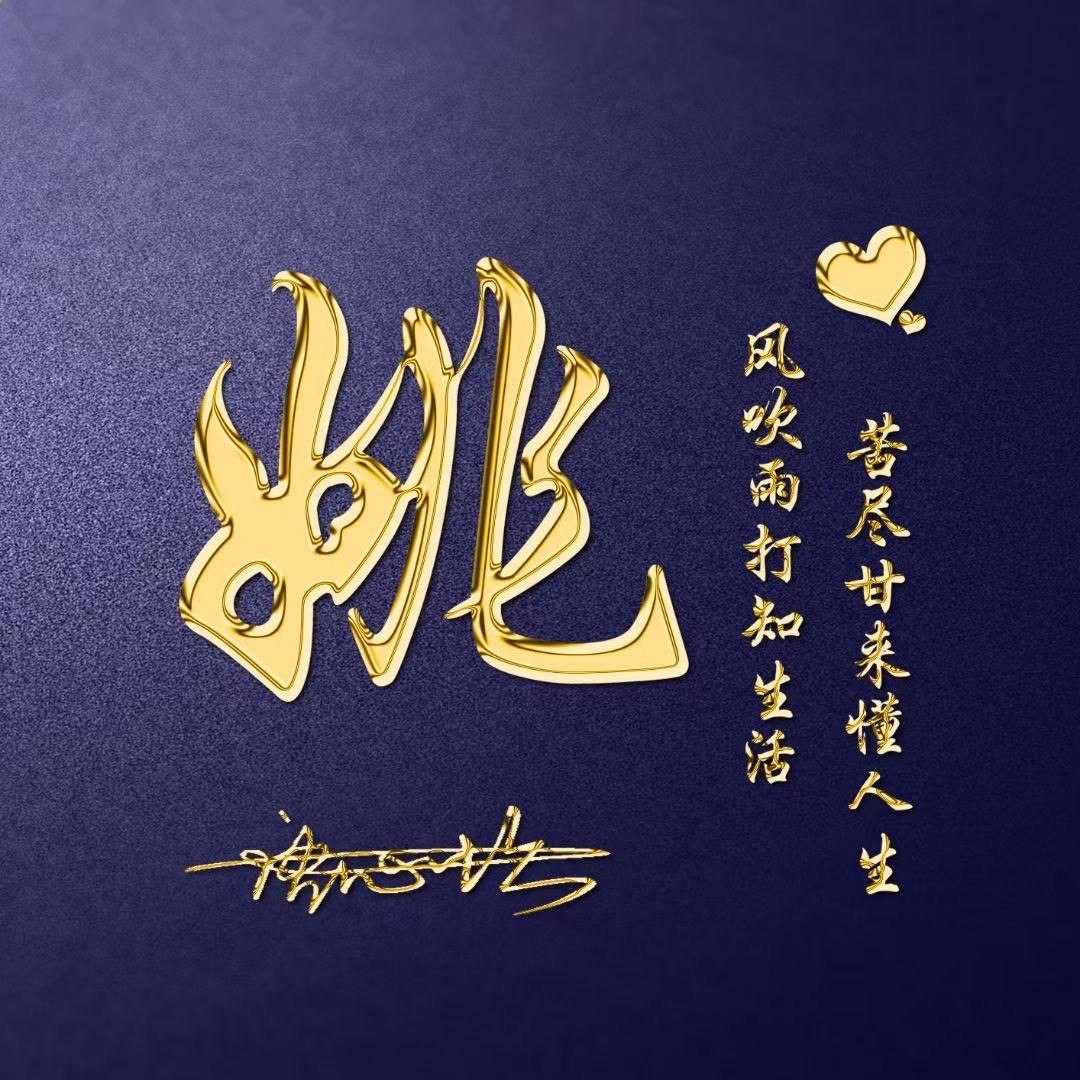 姚
苦尽甘来懂人生
风吹雨打知生活